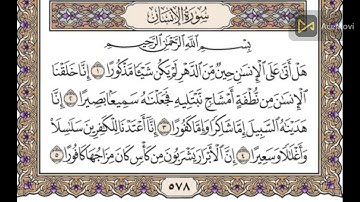 سُورَةُ الإِنسَانِ
AceMovi
بِسْمِ اللَّهِ الرَّحْمَٰنِ الرَّحِيمِ
هَلْ أَتَىٰ عَلَى الْإِنسَانِ حِينٌ مِّنَ الدَّهْرِ لَمْ يَكُن شَيْئًا مَّذْكُورًا ١ إِنَّا خَلَقْنَا
الْإِنسَانَ مِن نُّطْفَةٍ أَمْشَاجٍ نَّبْتَلِيهِ فَجَعَلْنَاهُ سَمِيعًا بَصِيرًا ٢ إِنَّا
هَدَيْنَاهُ السَّبِيلَ إِمَّا شَاكِرًا وَإِمَّا كَفُورًا ٣ إِنَّا أَعْتَدْنَا لِلْكَافِرِينَ سَلَاسِلَا
وَأَغْلَالًا وَسَعِيرًا ٤ إِنَّ الْأَبْرَارَ يَشْرَبُونَ مِن كَأْسٍ كَانَ مِزَاجُهَا كَافُورًا ٥
٥٧٨